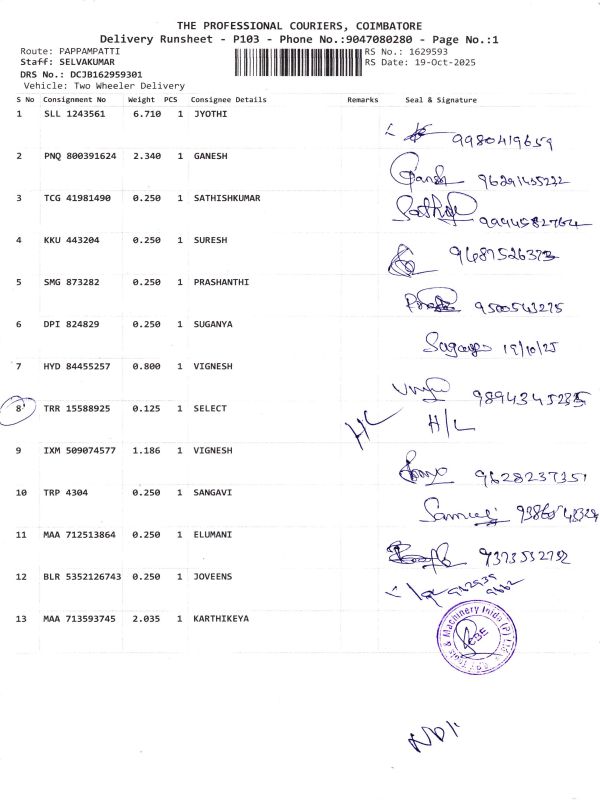 THE PROFESSIONAL COURIERS, COIMBATORE
Delivery Runsheet - P103 - Phone No.:9047080280 - Page No.:1
Route: PAPPAMPATTI RS No.: 1629593
Staff: SELVAKUMAR RS Date: 19-Oct-2025
DRS No.: DCJB162959301
Vehicle: Two Wheeler Delivery
S No Consignment No Weight PCS Consignee Details Remarks Seal & Signature
1 SLL 1243561 6.710 1 JYOTHI
9980419659
2 PNQ 800391624 2.340 1 GANESH
Ganesh
3 TCG 41981490 0.250 1 SATHISHKUMAR
9994582764
4 KKU 443204 0.250 1 SURESH
9487526373
5 SMG 873282 0.250 1 PRASHANTHI
9500543275
6 DPI 824829 0.250 1 SUGANYA
Suganya 19/10/25
7 HYD 84455257 0.800 1 VIGNESH
8 TRR 15588925 0.125 1 SELECT
H/L H/L
9 IXM 509074577 1.186 1 VIGNESH
9628237351
10 TRP 4304 0.250 1 SANGAVI
11 MAA 712513864 0.250 1 ELUMANI
9373532752
12 BLR 5352126743 0.250 1 JOVEENS
13 MAA 713593745 2.035 1 KARTHIKEYA
Tools & Machinery India (P) Ltd
CBE